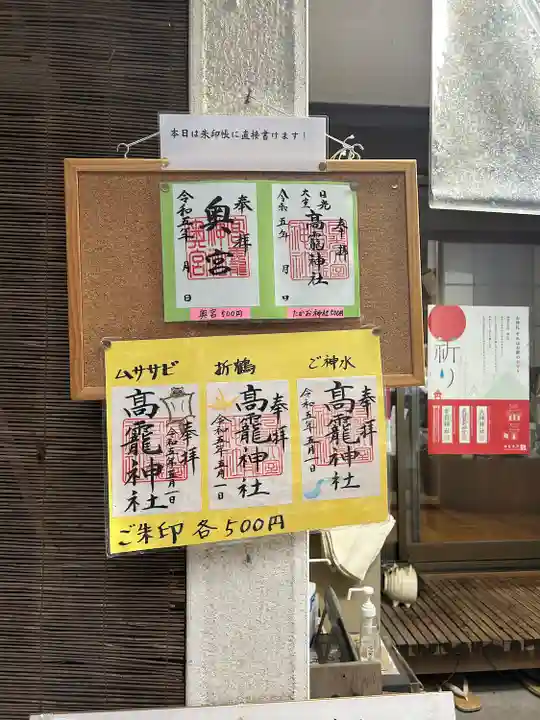 本日は朱印帳に直接書けます!
奉拝
奥宮
令和五年 月 日
奥宮 500円
奉拝
日光
大室
高龗神社
令和五年 月 日
たかお神社 500円
ムササビ
折鶴
ご神水
奉拝
高龗神社
令和五年五月一日
奉拝
高龗神社
令和五年五月一日
奉拝
高龗神社
令和五年五月一日
ご朱印 各500円
祈り